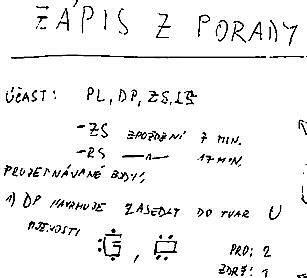 ZÁPIS Z PORADY
ÚČAST: PL, DP, ZS,
-ZS ZPOŽDĚNÍ 7 MIN.
-RS —〃— 17 MIN.
PROJEDNÁVANÉ BODY:
1) DP NAVRHUJE ZASEDLY DO TVAR U
PRO: 2
ZDRŽ: 1